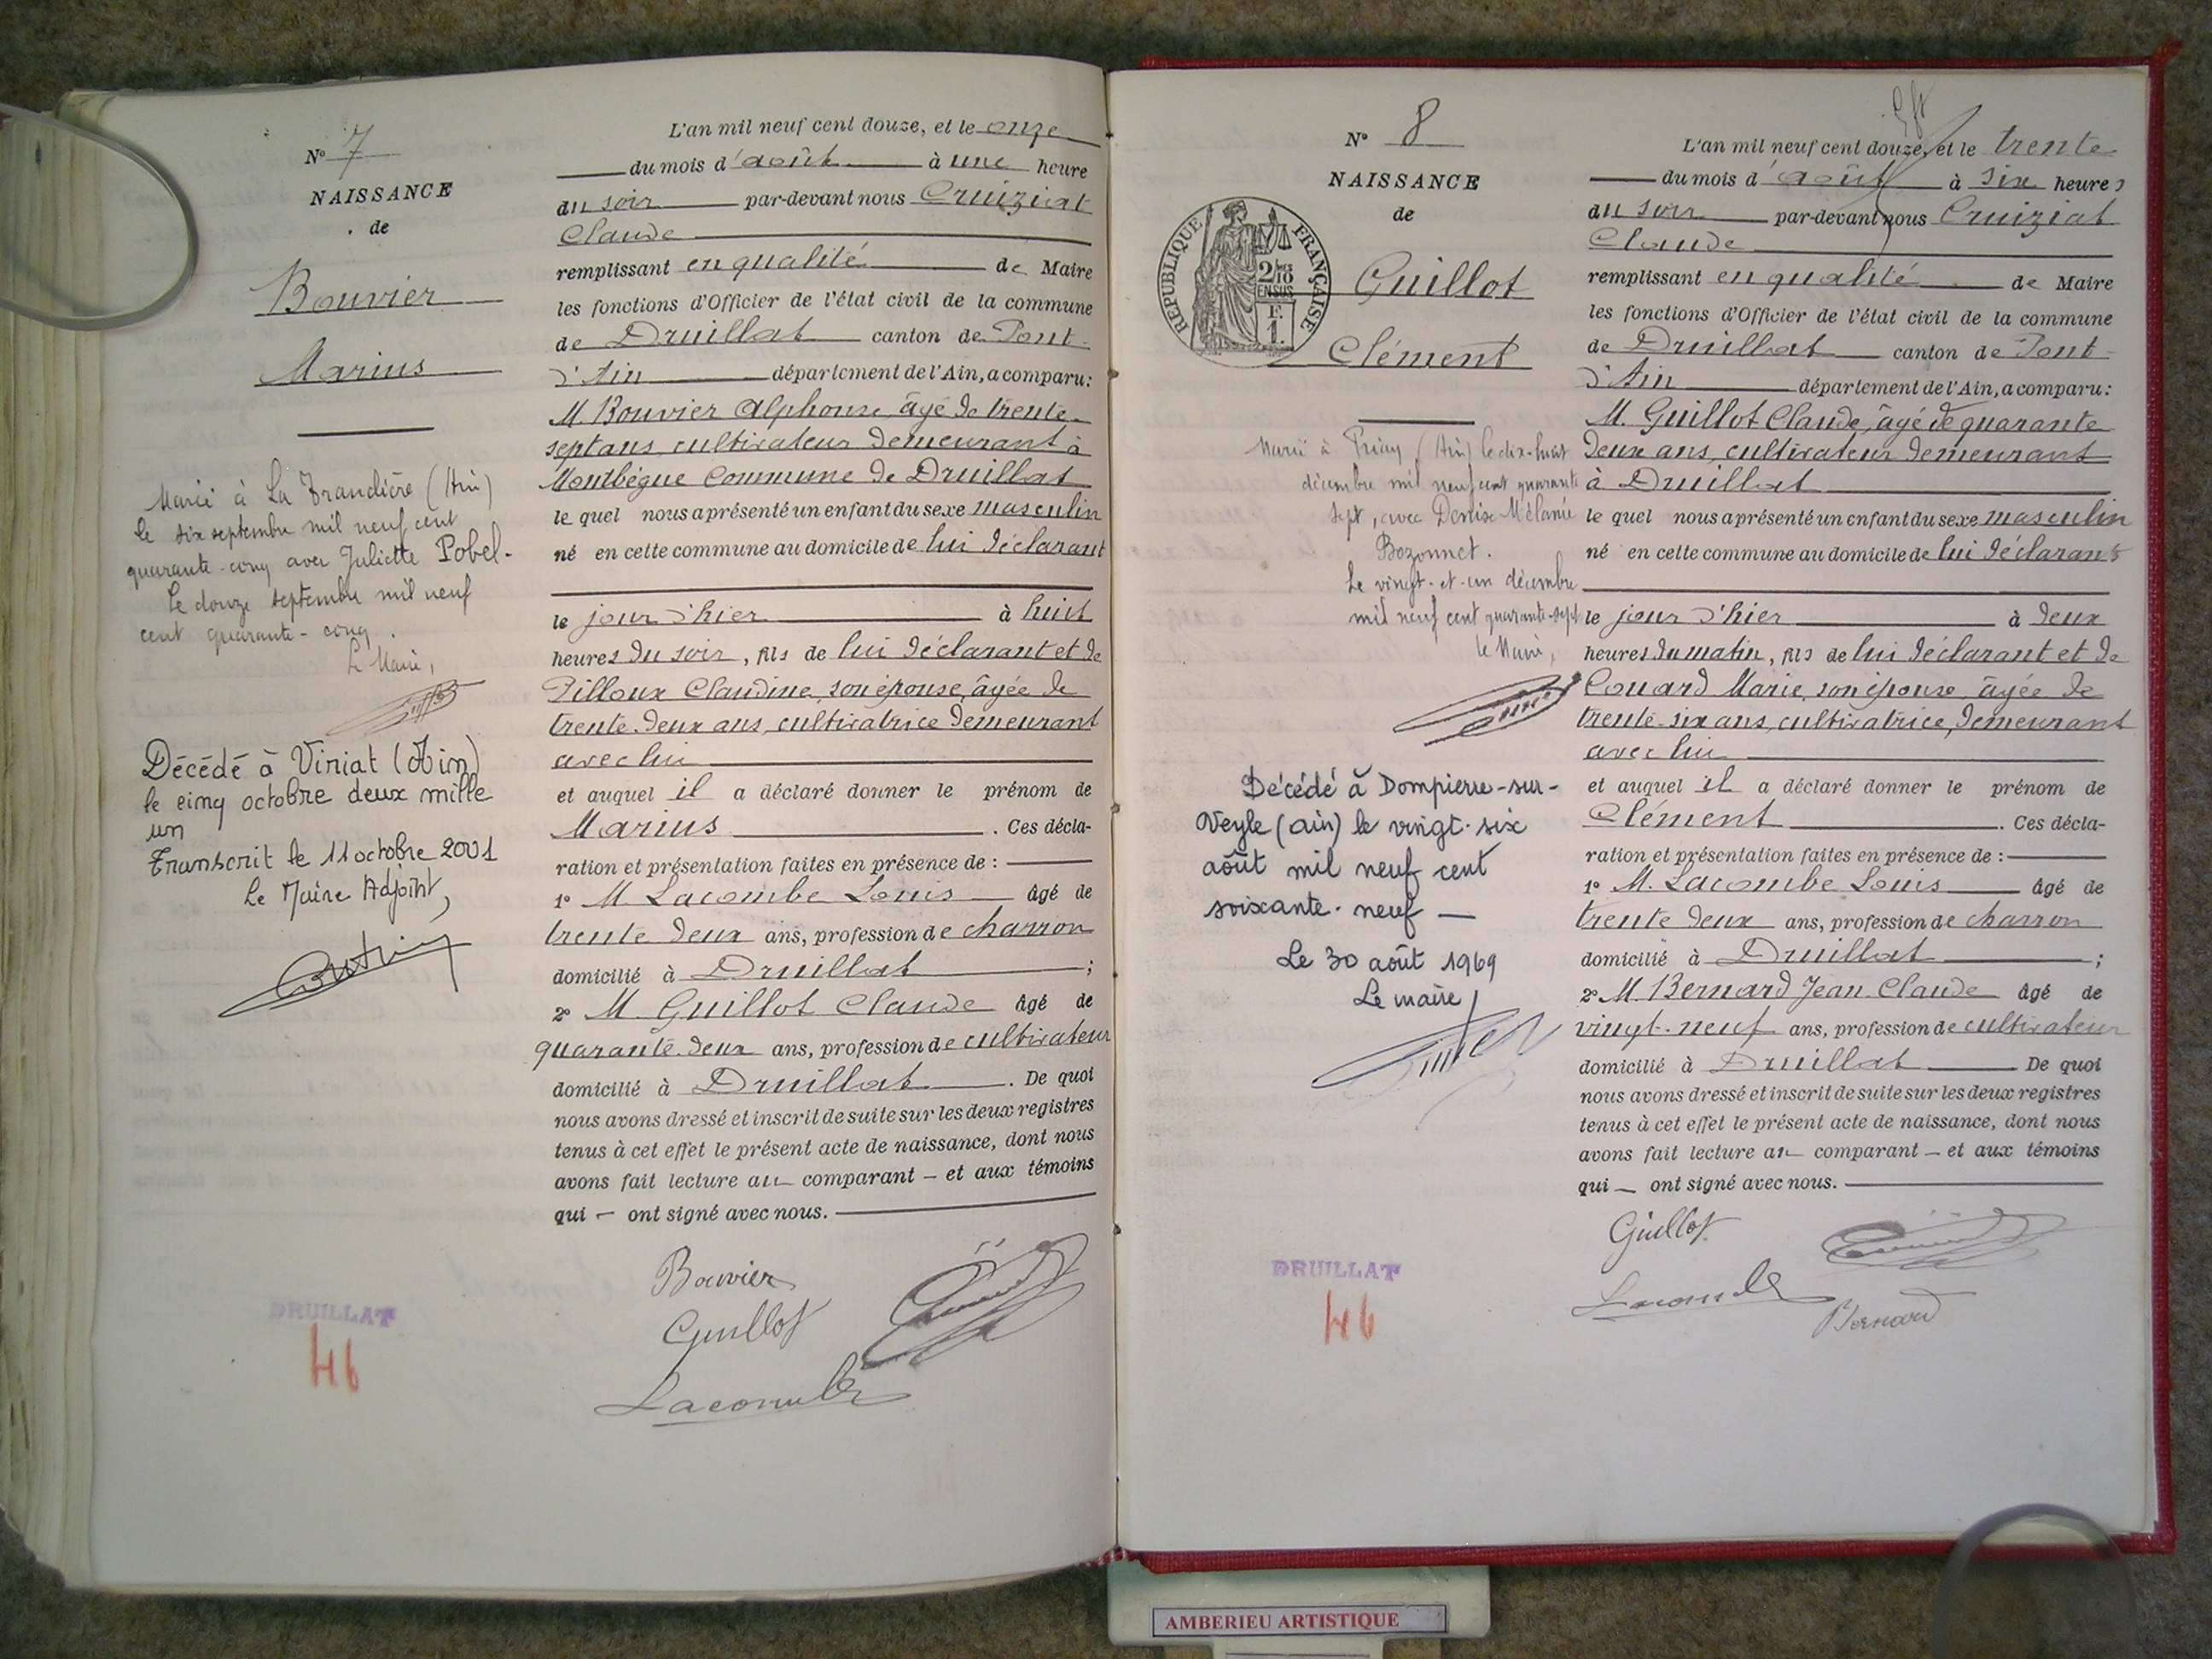 N° 7
NAISSANCE
de
Bouvier
Marius
Marié à La Tranclière (Ain)
le six septembre mil neuf cent
quarante-cinq avec Juliette Pobel.
Le douze septembre mil neuf
cent quarante-cinq.
Le Maire,
Décédé à Viriat (Ain)
le cinq octobre deux mille
un
Transcrit le 11 octobre 2001
Le Maire Adjoint,
DRUILLAT
46
L'an mil neuf cent douze, et le onze
du mois d'août à une heure
du soir par-devant nous Cruiziat
Claude
remplissant en qualité de Maire
les fonctions d'Officier de l'état civil de la commune
de Druillat canton de Pont-
d'Ain département de l'Ain, a comparu:
M. Bouvier Alphonse, âgé de trente-
sept ans, cultivateur demeurant à
Montbègue Commune de Druillat
le quel nous a présenté un enfant du sexe masculin
né en cette commune au domicile de lui déclarant
le jour d'hier à huit
heures du soir, fils de lui déclarant et de
Pilloux Claudine, son épouse, âgée de
trente-deux ans, cultivatrice demeurant
avec lui
et auquel il a déclaré donner le prénom de
Marius. Ces décla-
ration et présentation faites en présence de :
1° M Lacombe Louis âgé de
trente deux ans, profession de charron
domicilié à Druillat ;
2° M Guillot Claude âgé de
quarante-deux ans, profession de cultivateur
domicilié à Druillat. De quoi
nous avons dressé et inscrit de suite sur les deux registres
tenus à cet effet le présent acte de naissance, dont nous
avons fait lecture au comparant — et aux témoins
qui — ont signé avec nous.
Bouvier
Guillot
Lacombe
N° 8
NAISSANCE
de
RÉPUBLIQUE FRANÇAISE
2/10
EN SUS
F.
1.
Guillot
Clément
Marié à Priay (Ain) le dix-huit
décembre mil neuf cent quarante
sept, avec Denise Mélanie
Bozonnet.
Le vingt-et-un décembre
mil neuf cent quarante-sept
le Maire,
Décédé à Dompierre-sur-
Veyle (ain) le vingt-six
août mil neuf cent
soixante-neuf —
Le 30 août 1969
Le maire
DRUILLAT
46
L'an mil neuf cent douze, et le trente
du mois d'août à six heures
du soir par-devant nous Cruiziat
Claude
remplissant en qualité de Maire
les fonctions d'Officier de l'état civil de la commune
de Druillat canton de Pont-
d'Ain département de l'Ain, a comparu:
M. Guillot Claude, âgé de quarante
deux ans, cultivateur demeurant
à Druillat
le quel nous a présenté un enfant du sexe masculin
né en cette commune au domicile de lui déclarant
le jour d'hier à deux
heures du matin, fils de lui déclarant et de
Couard Marie, son épouse, âgée de
trente-six ans, cultivatrice, demeurant
avec lui
et auquel il a déclaré donner le prénom de
Clément. Ces décla-
ration et présentation faites en présence de :
1° M. Lacombe Louis âgé de
trente deux ans, profession de charron
domicilié à Druillat ;
2° M. Bernard Jean Claude âgé de
vingt-neuf ans, profession de cultivateur
domicilié à Druillat De quoi
nous avons dressé et inscrit de suite sur les deux registres
tenus à cet effet le présent acte de naissance, dont nous
avons fait lecture au comparant — et aux témoins
qui — ont signé avec nous.
Guillot
Lacombe
Bernard
AMBERIEU ARTISTIQUE